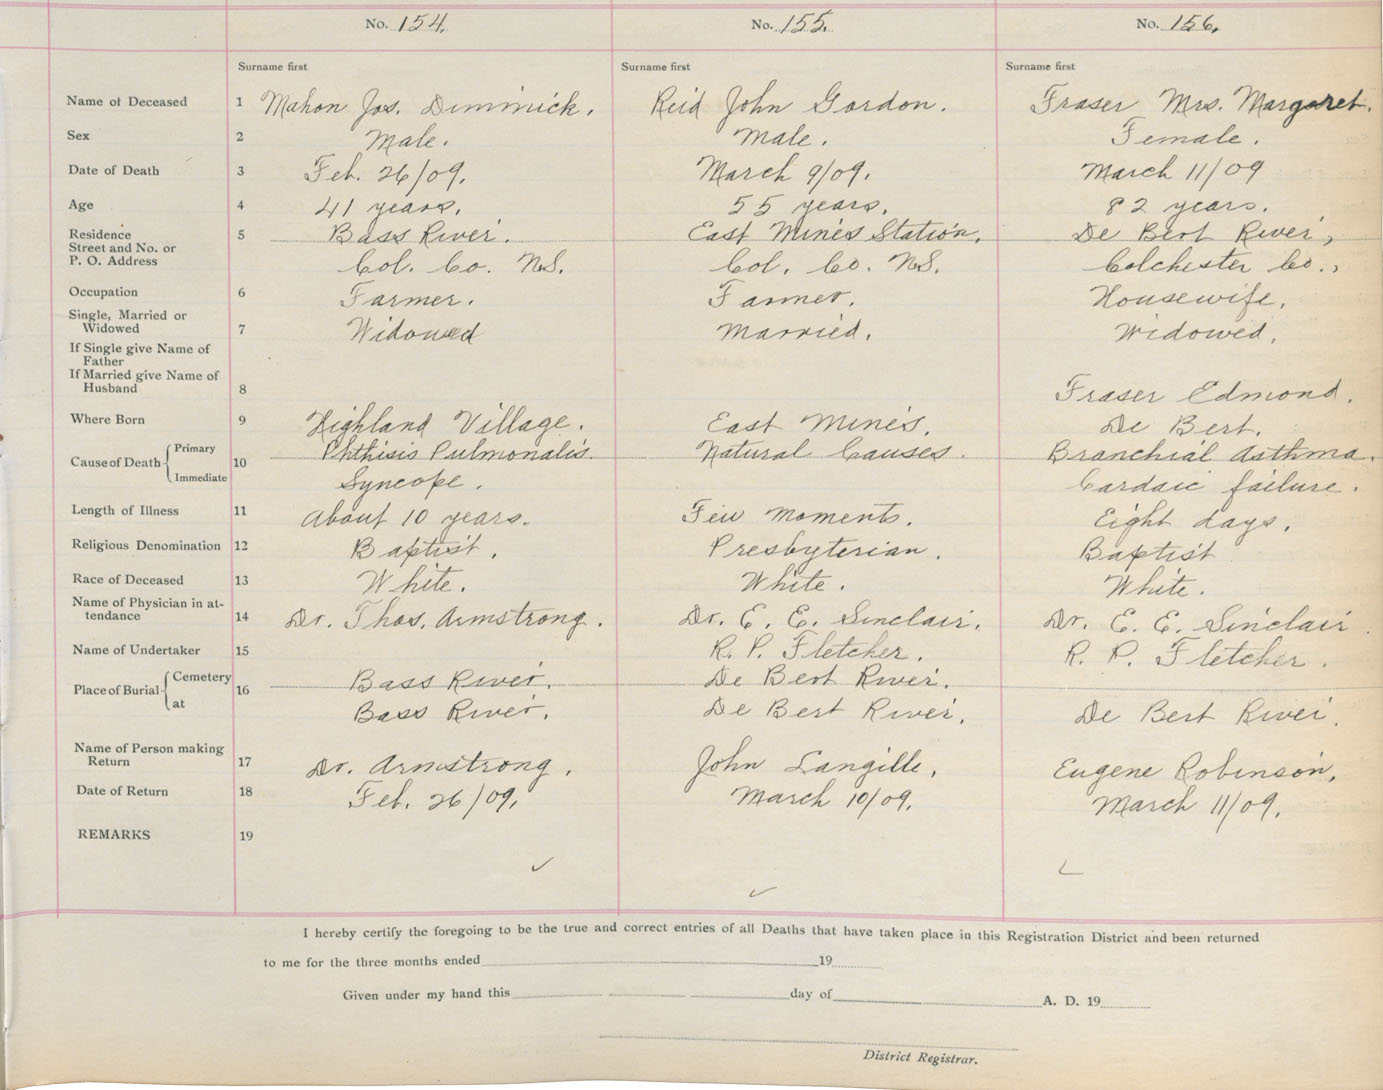 No. 154. No. 155. No. 156.
Surname first Surname first Surname first
Name of Deceased 1 Mahon Jos. Dimmick. Reid John Gordon. Fraser Mrs. Margaret.
Sex 2 Male. Male. Female.
Date of Death 3 Feb. 26/09. March 9/09. March 11/09
Age 4 41 years. 55 years. 82 years.
Residence 5 Bass River. East Mines Station. De Bert River,
Street and No. or
P. O. Address Col. Co. N.S. Col. Co. N.S. Colchester Co.,
Occupation 6 Farmer. Farmer. Housewife.
Single, Married or
Widowed 7 Widowed Married. Widowed.
If Single give Name of
Father
If Married give Name of
Husband 8 Fraser Edmond.
Where Born 9 Highland Village. East Mines. De Bert.
Cause of Death Primary 10 Phthisis Pulmonalis. Natural Causes. Branchial Asthma.
Immediate Syncope. Cardaic failure.
Length of Illness 11 About 10 years. Few moments. Eight days.
Religious Denomination 12 Baptist. Presbyterian. Baptist
Race of Deceased 13 White. White. White.
Name of Physician in at-
tendance 14 Dr. Thos. Armstrong. Dr. E. E. Sinclair. Dr. E. E. Sinclair.
Name of Undertaker 15 R. P. Fletcher. R. P. Fletcher.
Place of Burial Cemetery 16 Bass River. De Bert River.
at Bass River. De Bert River. De Bert River.
Name of Person making
Return 17 Dr. Armstrong. John Langille. Eugene Robinson.
Date of Return 18 Feb. 26/09. March 10/09. March 11/09.
REMARKS 19
I hereby certify the foregoing to be the true and correct entries of all Deaths that have taken place in this Registration District and been returned
to me for the three months ended 19
Given under my hand this day of A. D. 19
District Registrar.